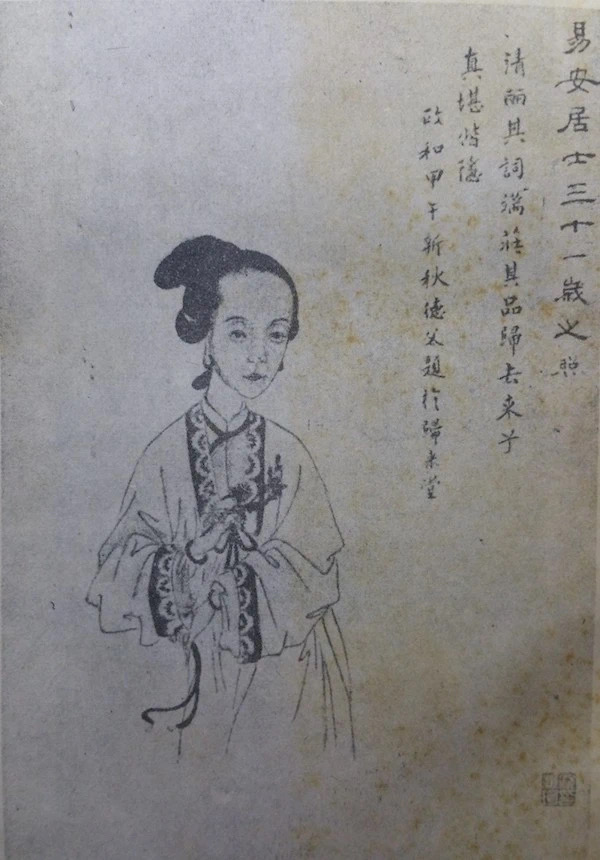 易安居士三十一歲之照
清丽其詞端莊其品歸去來兮
真堪偕隱
政和甲午新秋德父題於歸來堂